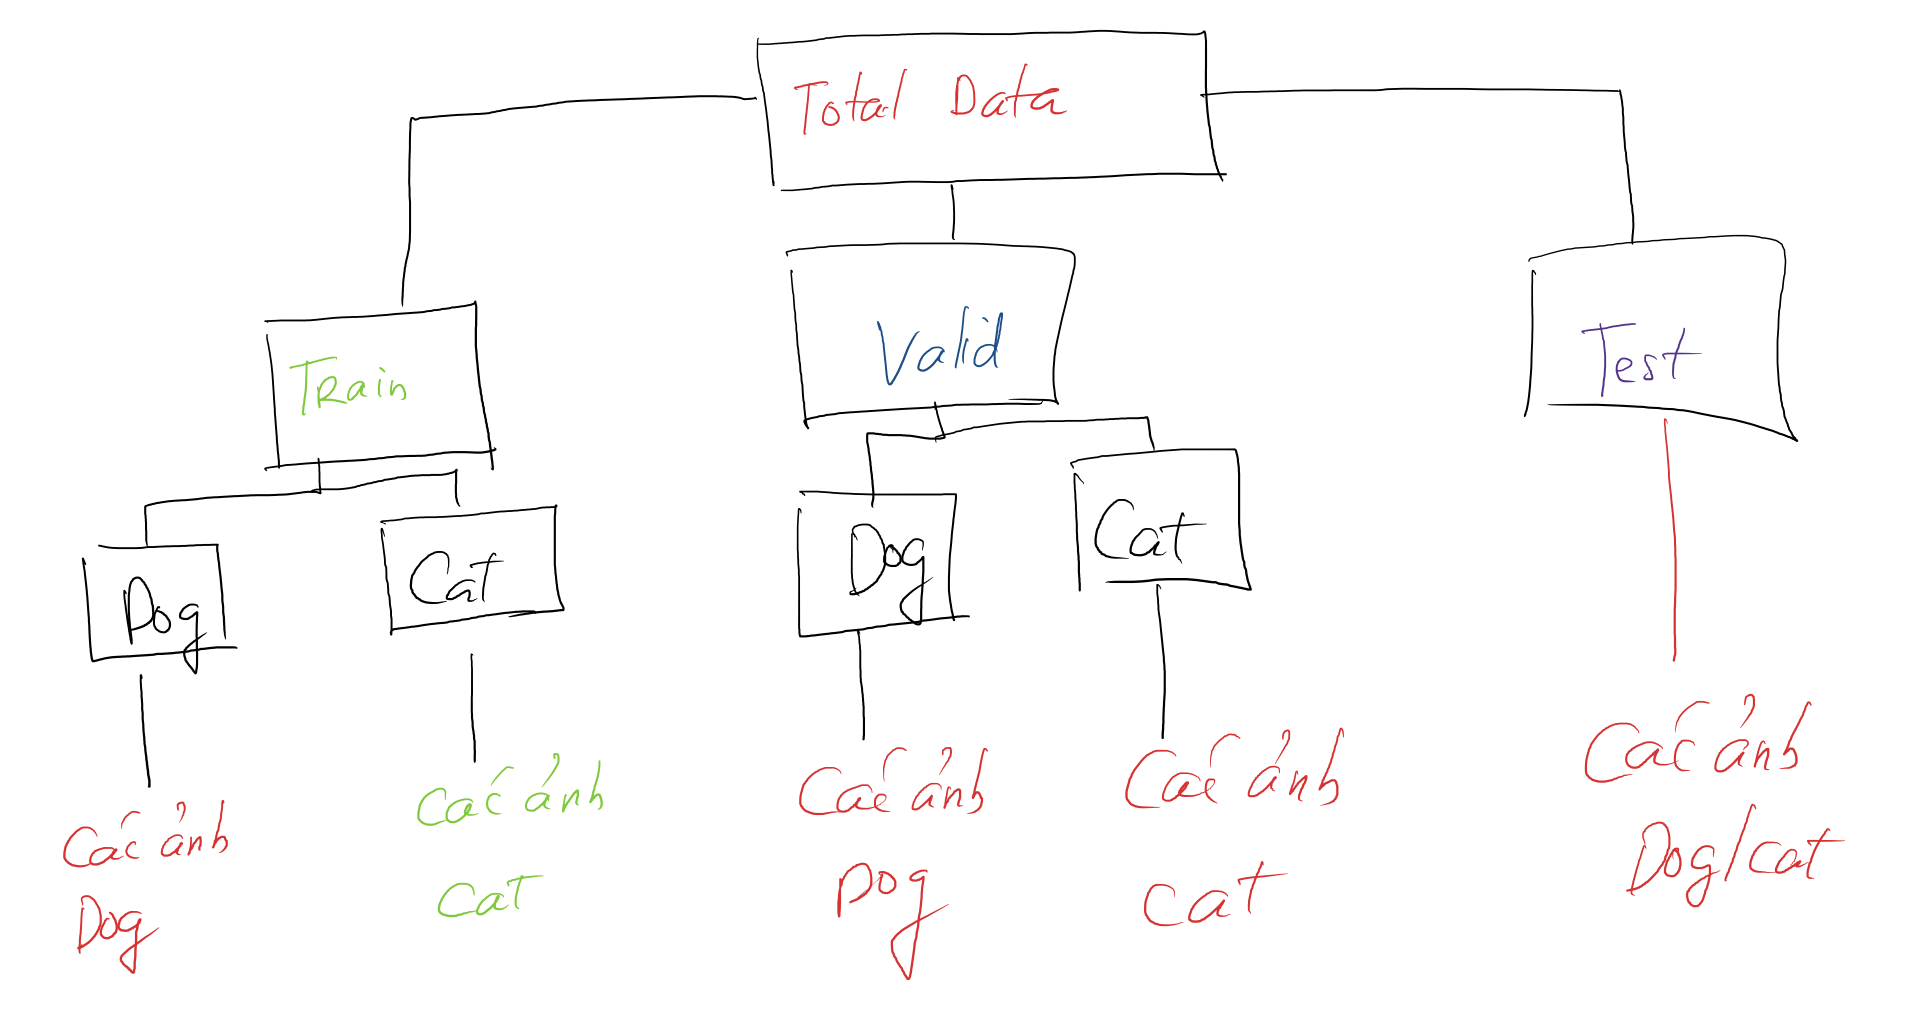 Total Data
Train
Valid
Test
Dog
Cat
Dog
Cat
Các ảnh
Dog
Các ảnh
Cat
Các ảnh
Dog
Các ảnh
Cat
Các ảnh
Dog/Cat